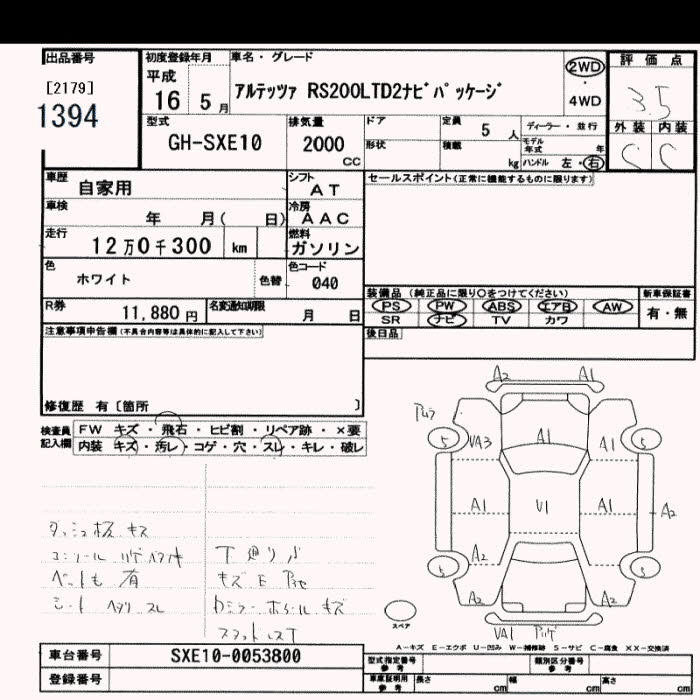 出品番号
[2179]
1394
初度登録年月
平成
16 5 月
車名・グレード
アルテッツァ RS200LTD2ナビパッケージ
2WD
・
4WD
評価点
3.5
外装 内装
C C
型式
GH-SXE10
排気量
2000
CC
ドア
形状
定員 5 人
積載 kg
ディーラー・並行
モデル年式 年
ハンドル 左・右
車歴
自家用
シフト
AT
車検
年 月( 日)
冷房
AAC
走行
12万0千300 km
燃料
ガソリン
色
ホワイト
色替
色コード
040
R券
11,880 円
名変通知期限
月 日
セールスポイント(正常に機能するものに限ります)
装備品 (純正品に限り○をつけてください)
PS PW ABS エアB AW
SR ナビ TV カワ
新車保証書
有・無
後日品
注意事項申告欄(不具合内容等は具体的に記入して下さい)
修復歴 有〔箇所 〕
検査員
記入欄
FW キズ・飛石・ヒビ割・リペア跡・×要
内装 キズ・汚レ・コゲ・穴・スレ・キレ・破レ
ダッシュ板 キズ
シート ヘタリ スレ
下廻り サビ
A2 A1
5 VA3 A1 A1 5
A1 V1 A1 A2
5 A2 5
A2 A2
VA1
スペア
A－キズ E－エクボ U－凹み W－補修跡 S－サビ C－腐食 XX－交換済
車台番号
SXE10-0053800
登録番号
型式指定番号
参考
類別区分番号
参考
車庫証明用
参考
長さ cm 幅 cm 高さ cm